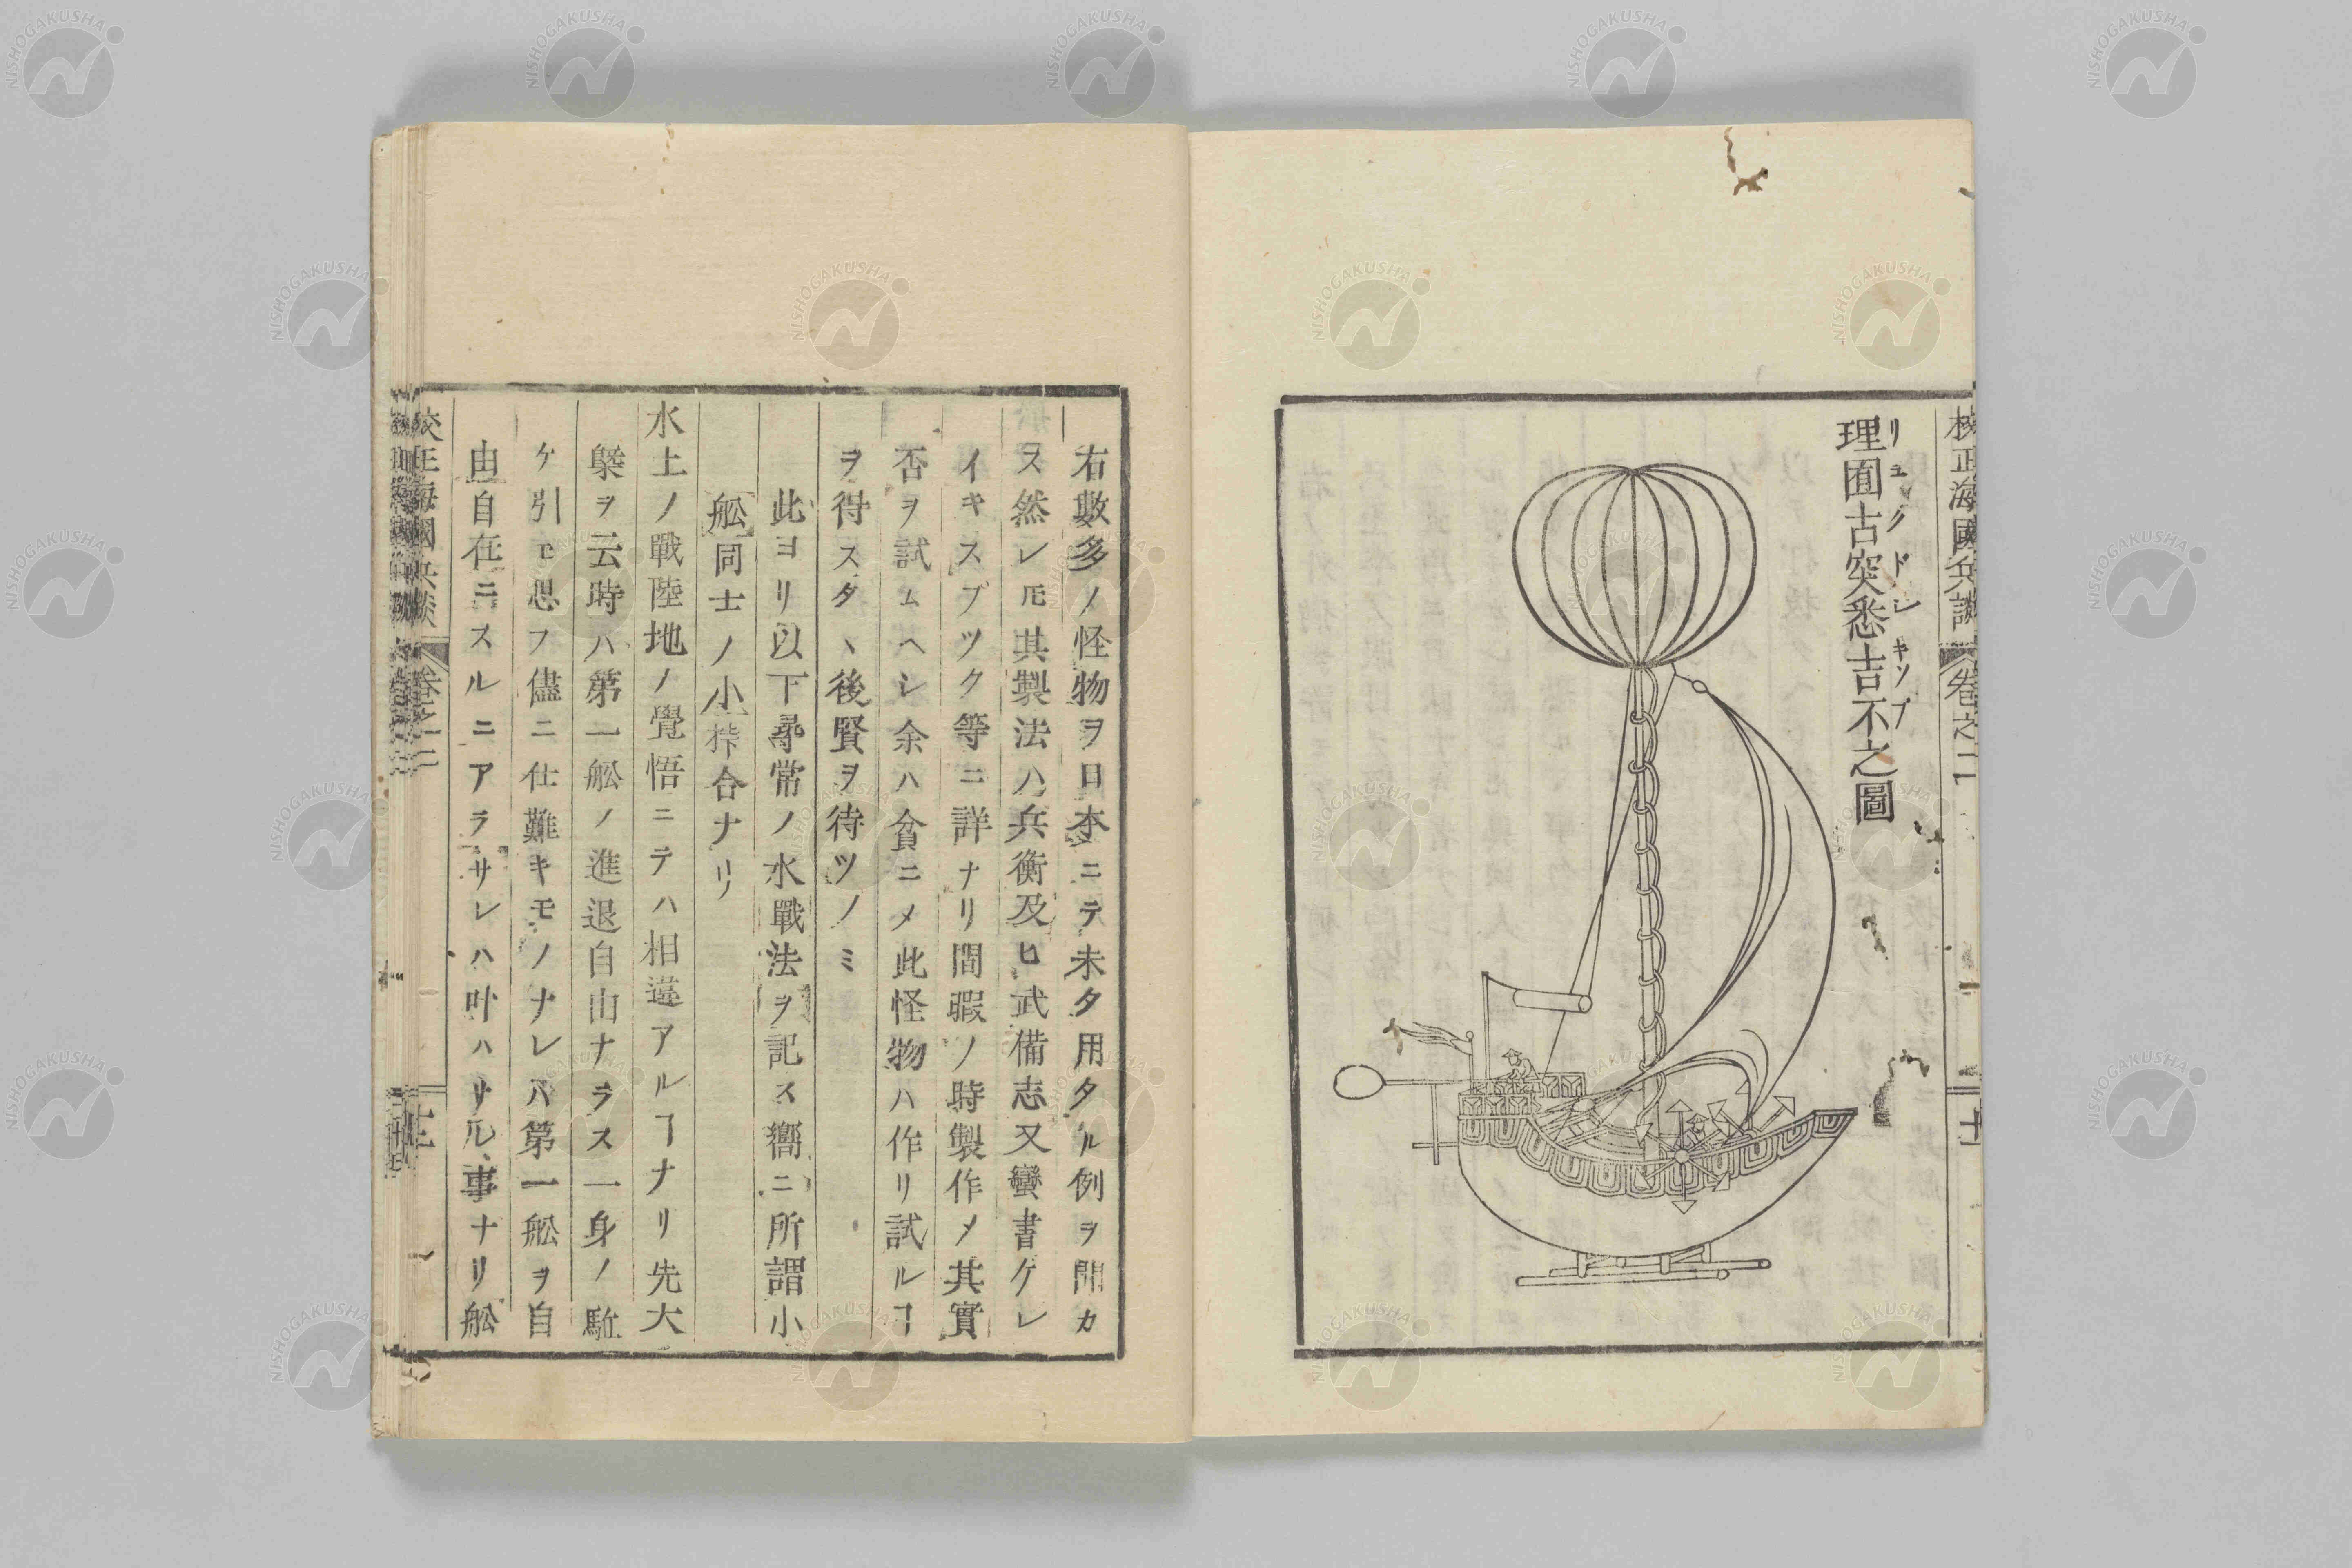 校正海國兵談 卷之二
理囿古突悉吉不之圖
リユクドシキップ
右數多ノ怪物ヲ日本ニテ未タ用タル例ヲ聞カ
ス然レ𪜈其製法ハ兵衡及ヒ武備志又蠻書ケレ
イキスブツク等ニ詳ナリ間暇ノ時製作メ其實
否ヲ試ムヘシ余ハ貧ニメ此怪物ハ作リ試ルヿ
ヲ得スタヽ後賢ヲ待ツノミ
此ヨリ以下尋常ノ水戰法ヲ記ス嚮ニ所謂小
舩同士ノ小挊合ナリ
水上ノ戰陸地ノ覺悟ニテハ相違アルヿナリ先大
槩ヲ云時ハ第一舩ノ進退自由ナラス一身ノ駈
ケ引モ思フ儘ニ仕難キモノナレハ第一舩ヲ自
由自在ニスルニアラサレハ叶ハサル事ナリ舩
校正海國兵談 卷之二
NISHOGAKUSHA